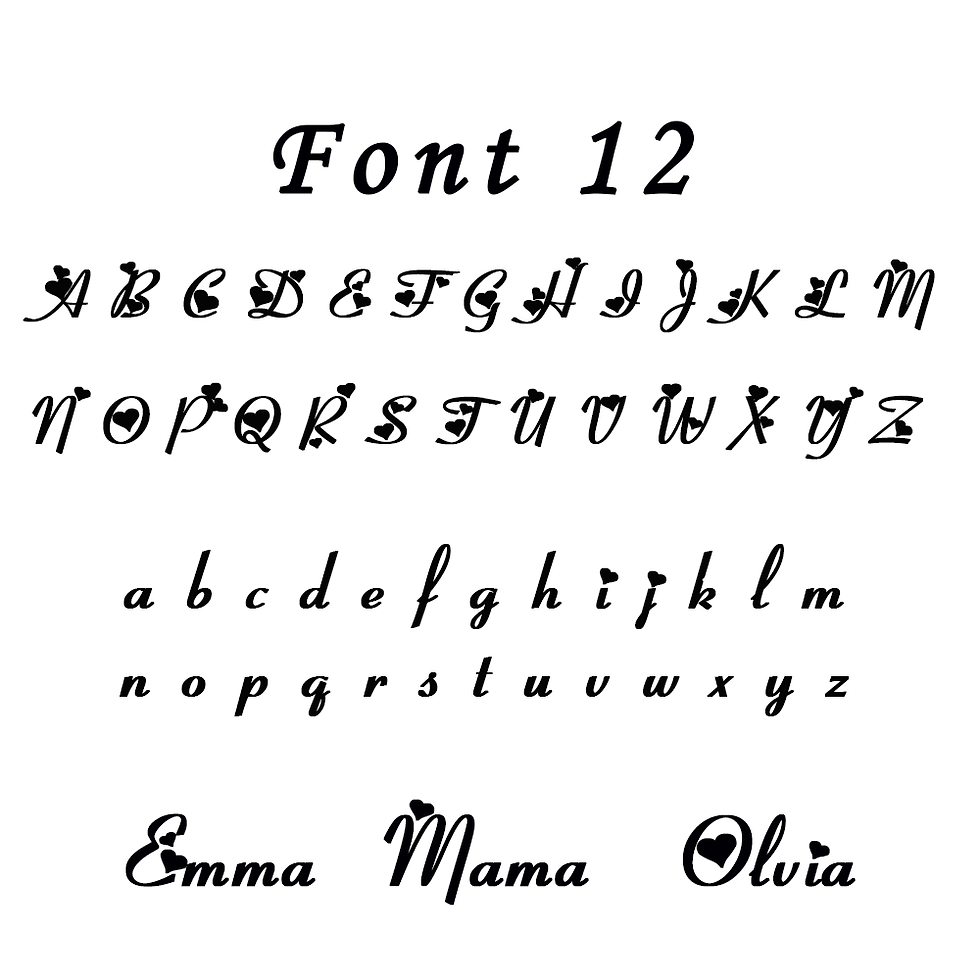 Font 12
A B C D E F G H I J K L M
N O P Q R S T U V W X Y Z
a b c d e f g h i j k l m
n o p q r s t u v w x y z
Emma Mama Olvia